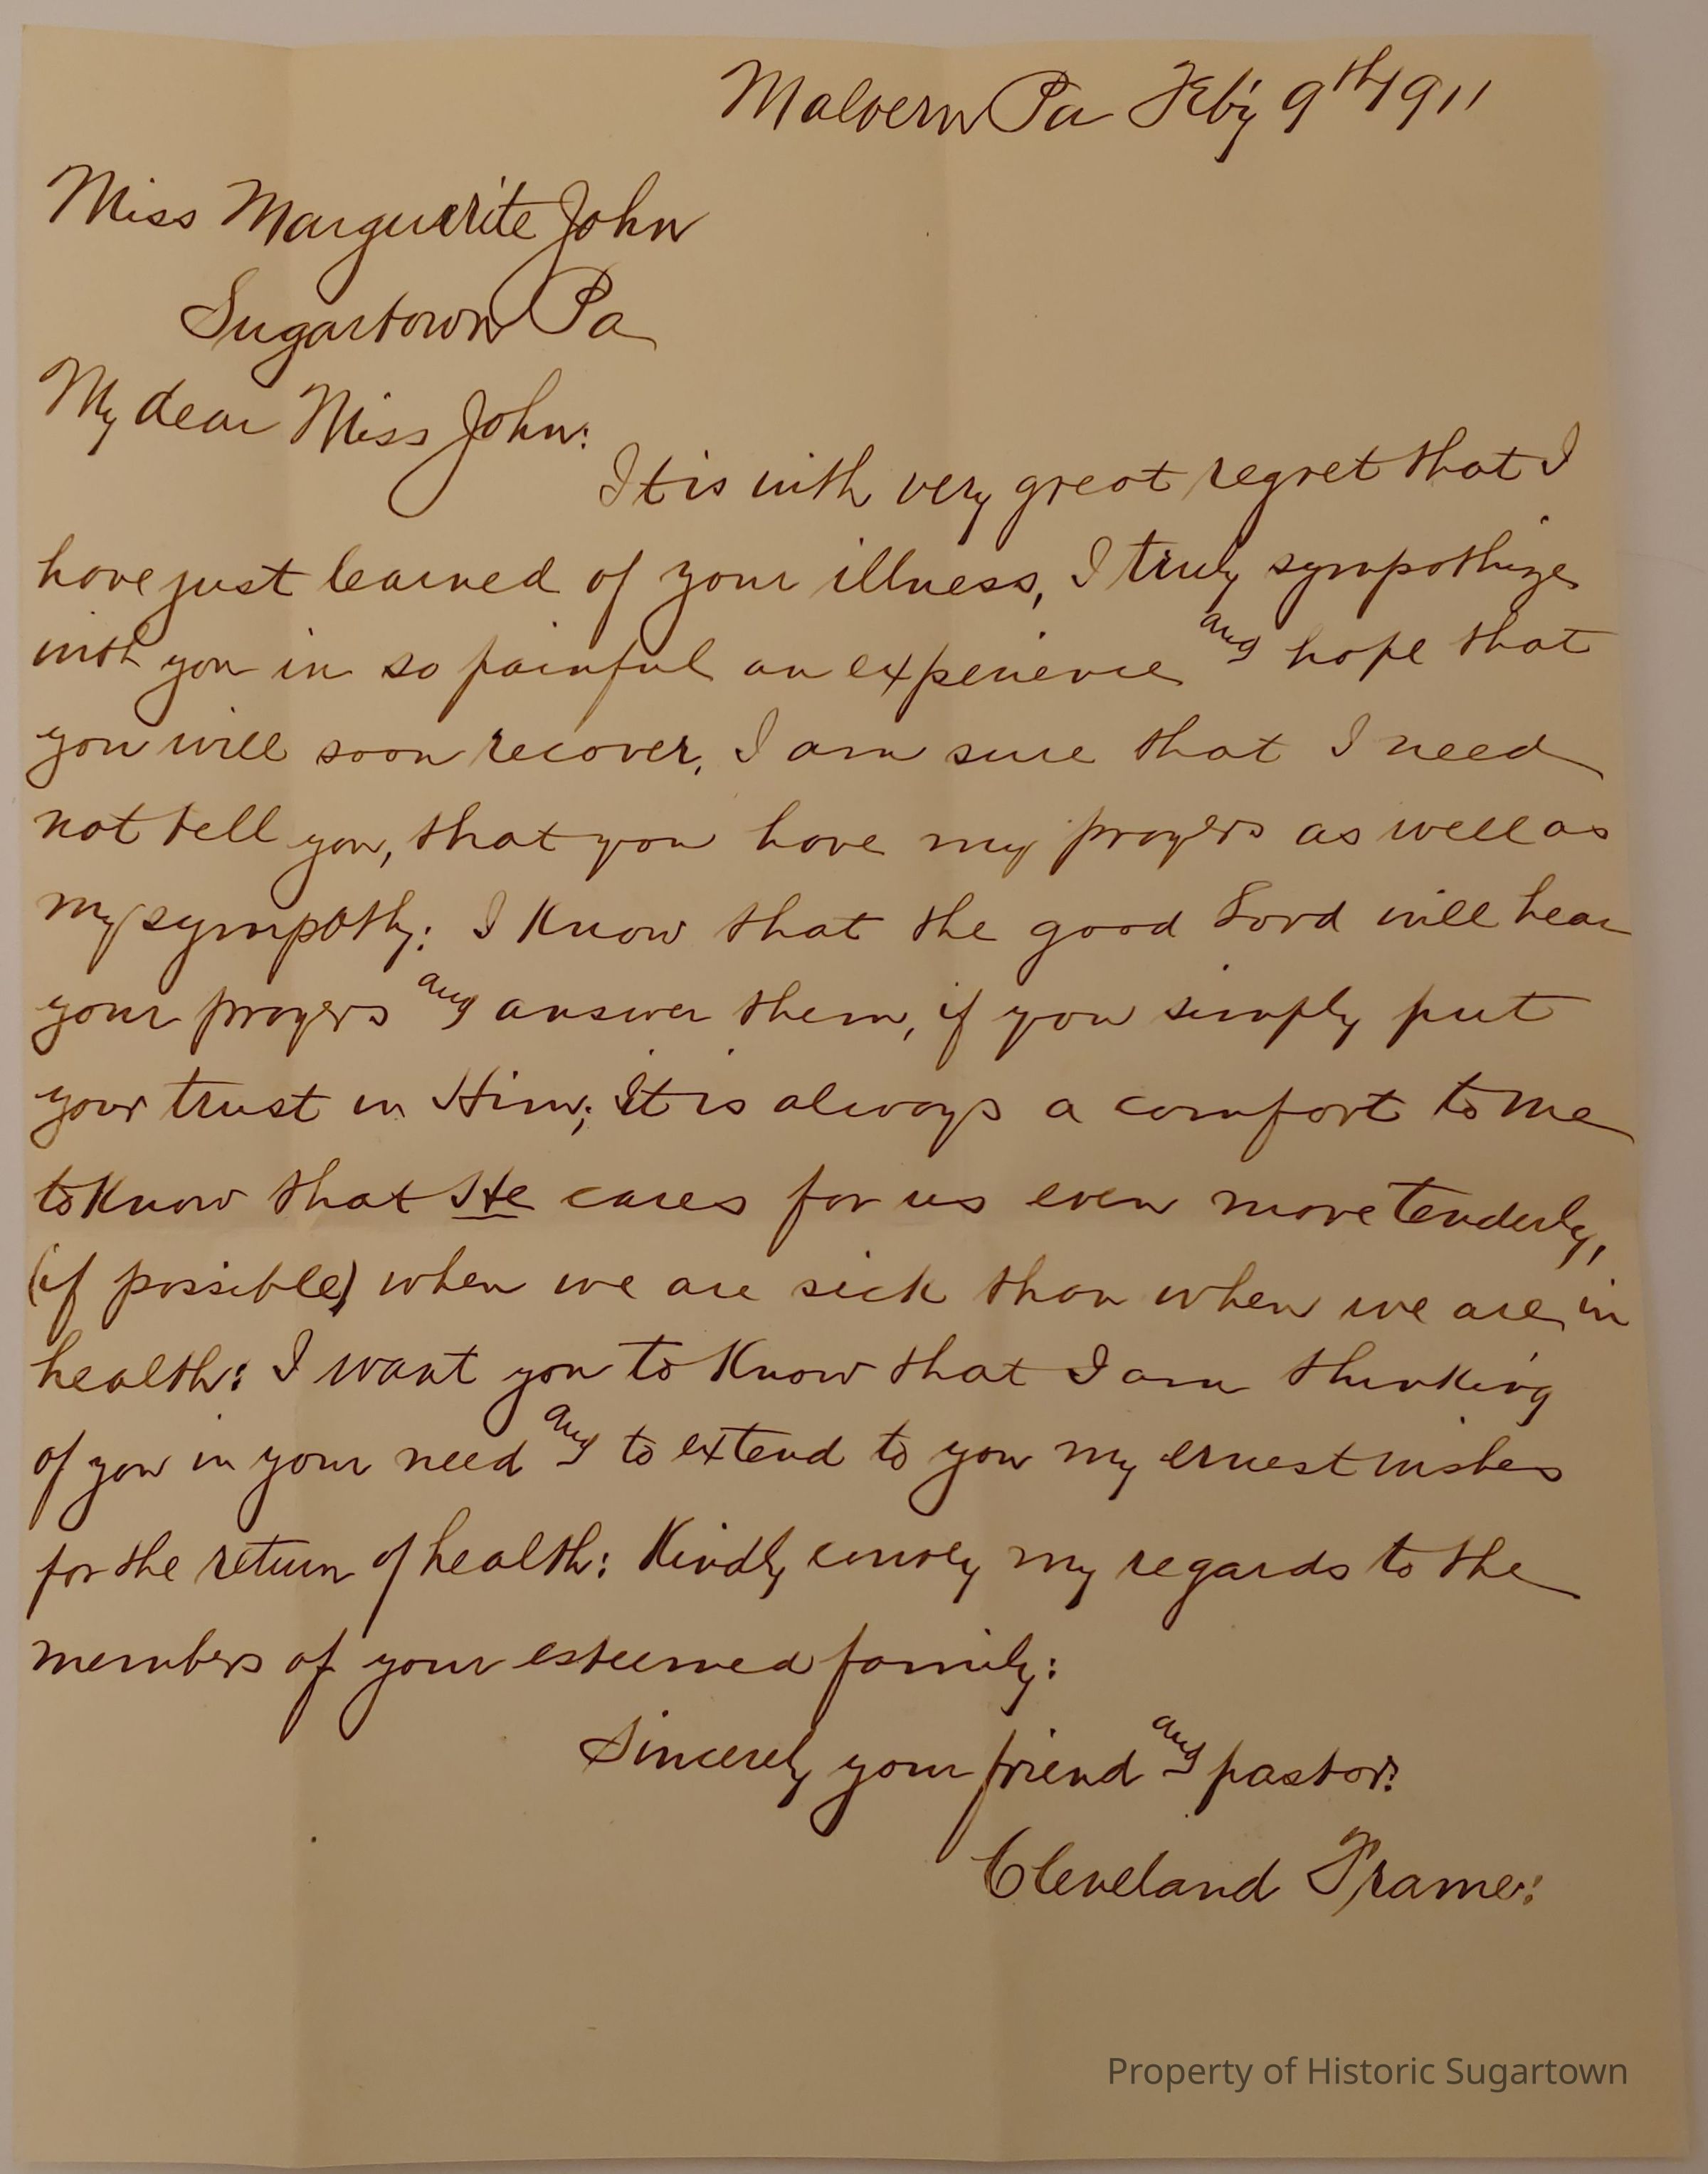 Malvern Pa Feby 9th 1911
Miss Marguerite John
Sugartown Pa
My dear Miss John:
It is with very great regret that I
have just learned of your illness, I truly sympathize
with you in so painful an experience and hope that
you will soon recover, I am sure that I need
not tell you, that you have my prayers as well as
my sympathy: I know that the good Lord will hear
your prayers and answer them, if you simply put
your trust in Him; It is always a comfort to me
to know that He cares for us even more tenderly,
(if possible) when we are sick than when we are in
health: I want you to know that I am thinking
of you in your need and to extend to you my ernest wishes
for the return of health: Kindly convey my regards to the
members of your esteemed family:
Sincerely your friend and pastor:
Cleveland Frame:
Property of Historic Sugartown